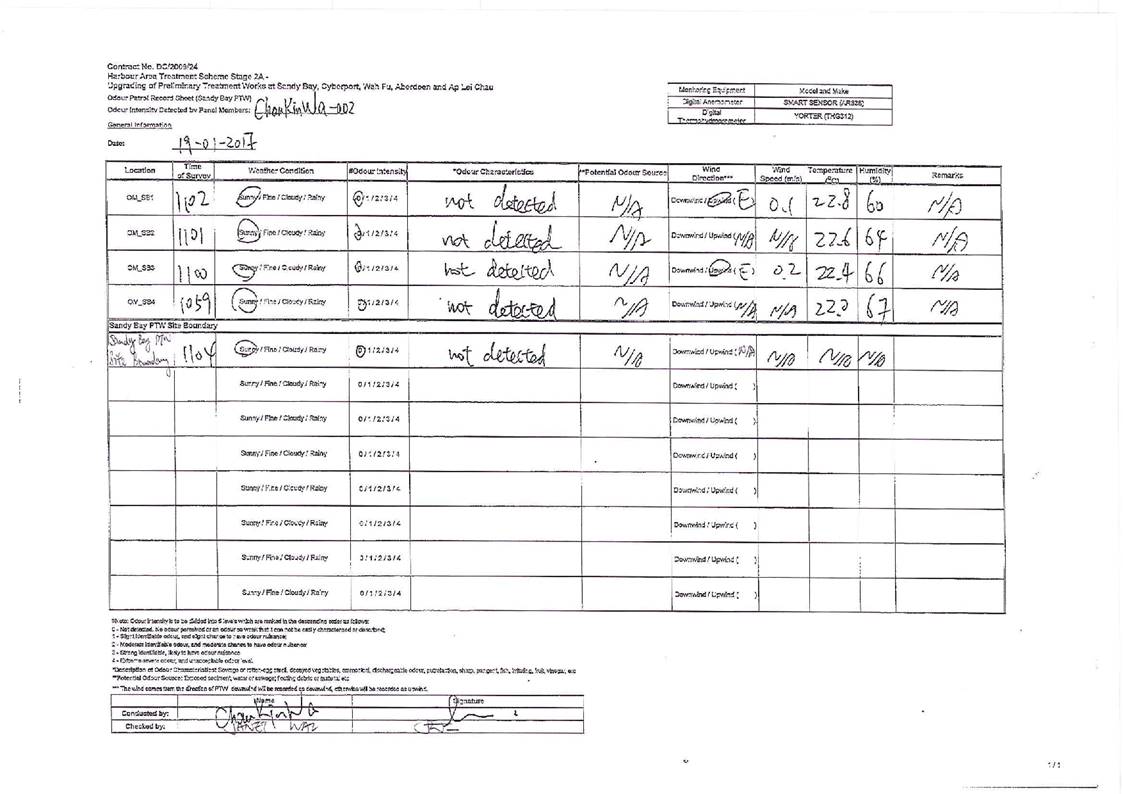 Contract No. DC/2009/24
Harbour Area Treatment Scheme Stage 2A -
Upgrading of Preliminary Treatment Works at Sandy Bay, Cyberport, Wah Fu, Aberdeen and Ap Lei Chau
Odour Patrol Record Sheet (Sandy Bay PTW)
Odour Intensity Detected by Panel Members: Chan Kin Wa-002
General Information
Date: 19-01-2017
Monitoring Equipment Model and Make
Digital Anemometer SMART SENSOR (AR826)
Digital Thermohydrometer YORTER (THG312)
Location Time of Survey Weather Condition #Odour Intensity *Odour Characteristics **Potential Odour Source Wind Direction*** Wind Speed (m/s) Temperature Humidity (%) Remarks
OM_SB1 1102 Sunny / Fine / Cloudy / Rainy 0/1/2/3/4 not detected N/A Downwind / Upwind (E) 0.1 22.8 60 N/A
OM_SB2 1101 Sunny / Fine / Cloudy / Rainy 0/1/2/3/4 not detected N/A Downwind / Upwind (N/A) N/A 22.6 64 N/A
OM_SB3 1100 Sunny / Fine / Cloudy / Rainy 0/1/2/3/4 not detected N/A Downwind / Upwind (E) 0.2 22.4 66 N/A
OM_SB4 1059 Sunny / Fine / Cloudy / Rainy 0/1/2/3/4 not detected N/A Downwind / Upwind (N/A) N/A 22.0 67 N/A
Sandy Bay PTW Site Boundary
Sandy Bay PTW Site Boundary 1104 Sunny / Fine / Cloudy / Rainy 0/1/2/3/4 not detected N/A Downwind / Upwind (N/A) N/A N/A N/A
Sunny / Fine / Cloudy / Rainy 0/1/2/3/4 Downwind / Upwind ( )
Sunny / Fine / Cloudy / Rainy 0/1/2/3/4 Downwind / Upwind ( )
Sunny / Fine / Cloudy / Rainy 0/1/2/3/4 Downwind / Upwind ( )
Sunny / Fine / Cloudy / Rainy 0/1/2/3/4 Downwind / Upwind ( )
Sunny / Fine / Cloudy / Rainy 0/1/2/3/4 Downwind / Upwind ( )
Sunny / Fine / Cloudy / Rainy 0/1/2/3/4 Downwind / Upwind ( )
Sunny / Fine / Cloudy / Rainy 0/1/2/3/4 Downwind / Upwind ( )
Note: Odour intensity is to be divided into 5 levels which are ranked in the descending order as follows:
0 - Not detected. No odour perceived or an odour so weak that it can not be easily characterised or described;
1 - Slight identifiable odour, and slight chance to have odour nuisance;
2 - Moderate identifiable odour, and moderate chance to have odour nuisance
3 - Strong identifiable, likely to have odour nuisance
4 - Extreme severe odour, and unacceptable odour level.
*Description of Odour Characteristics: Sewage or rotten-egg smell, decayed vegetables, ammonical, dischargeable odour, putrefaction, sharp, pungent, fish, irritating, fruit, vinegar, etc
**Potential Odour Source: Exposed sediment, water or sewage; floating debris or material etc
*** The wind comes from the direction of PTW downwind will be recorded as downwind, otherwise will be recorded as upwind.
Name Signature
Conducted by: Chan Kin Wa
Checked by: JANET
1/1